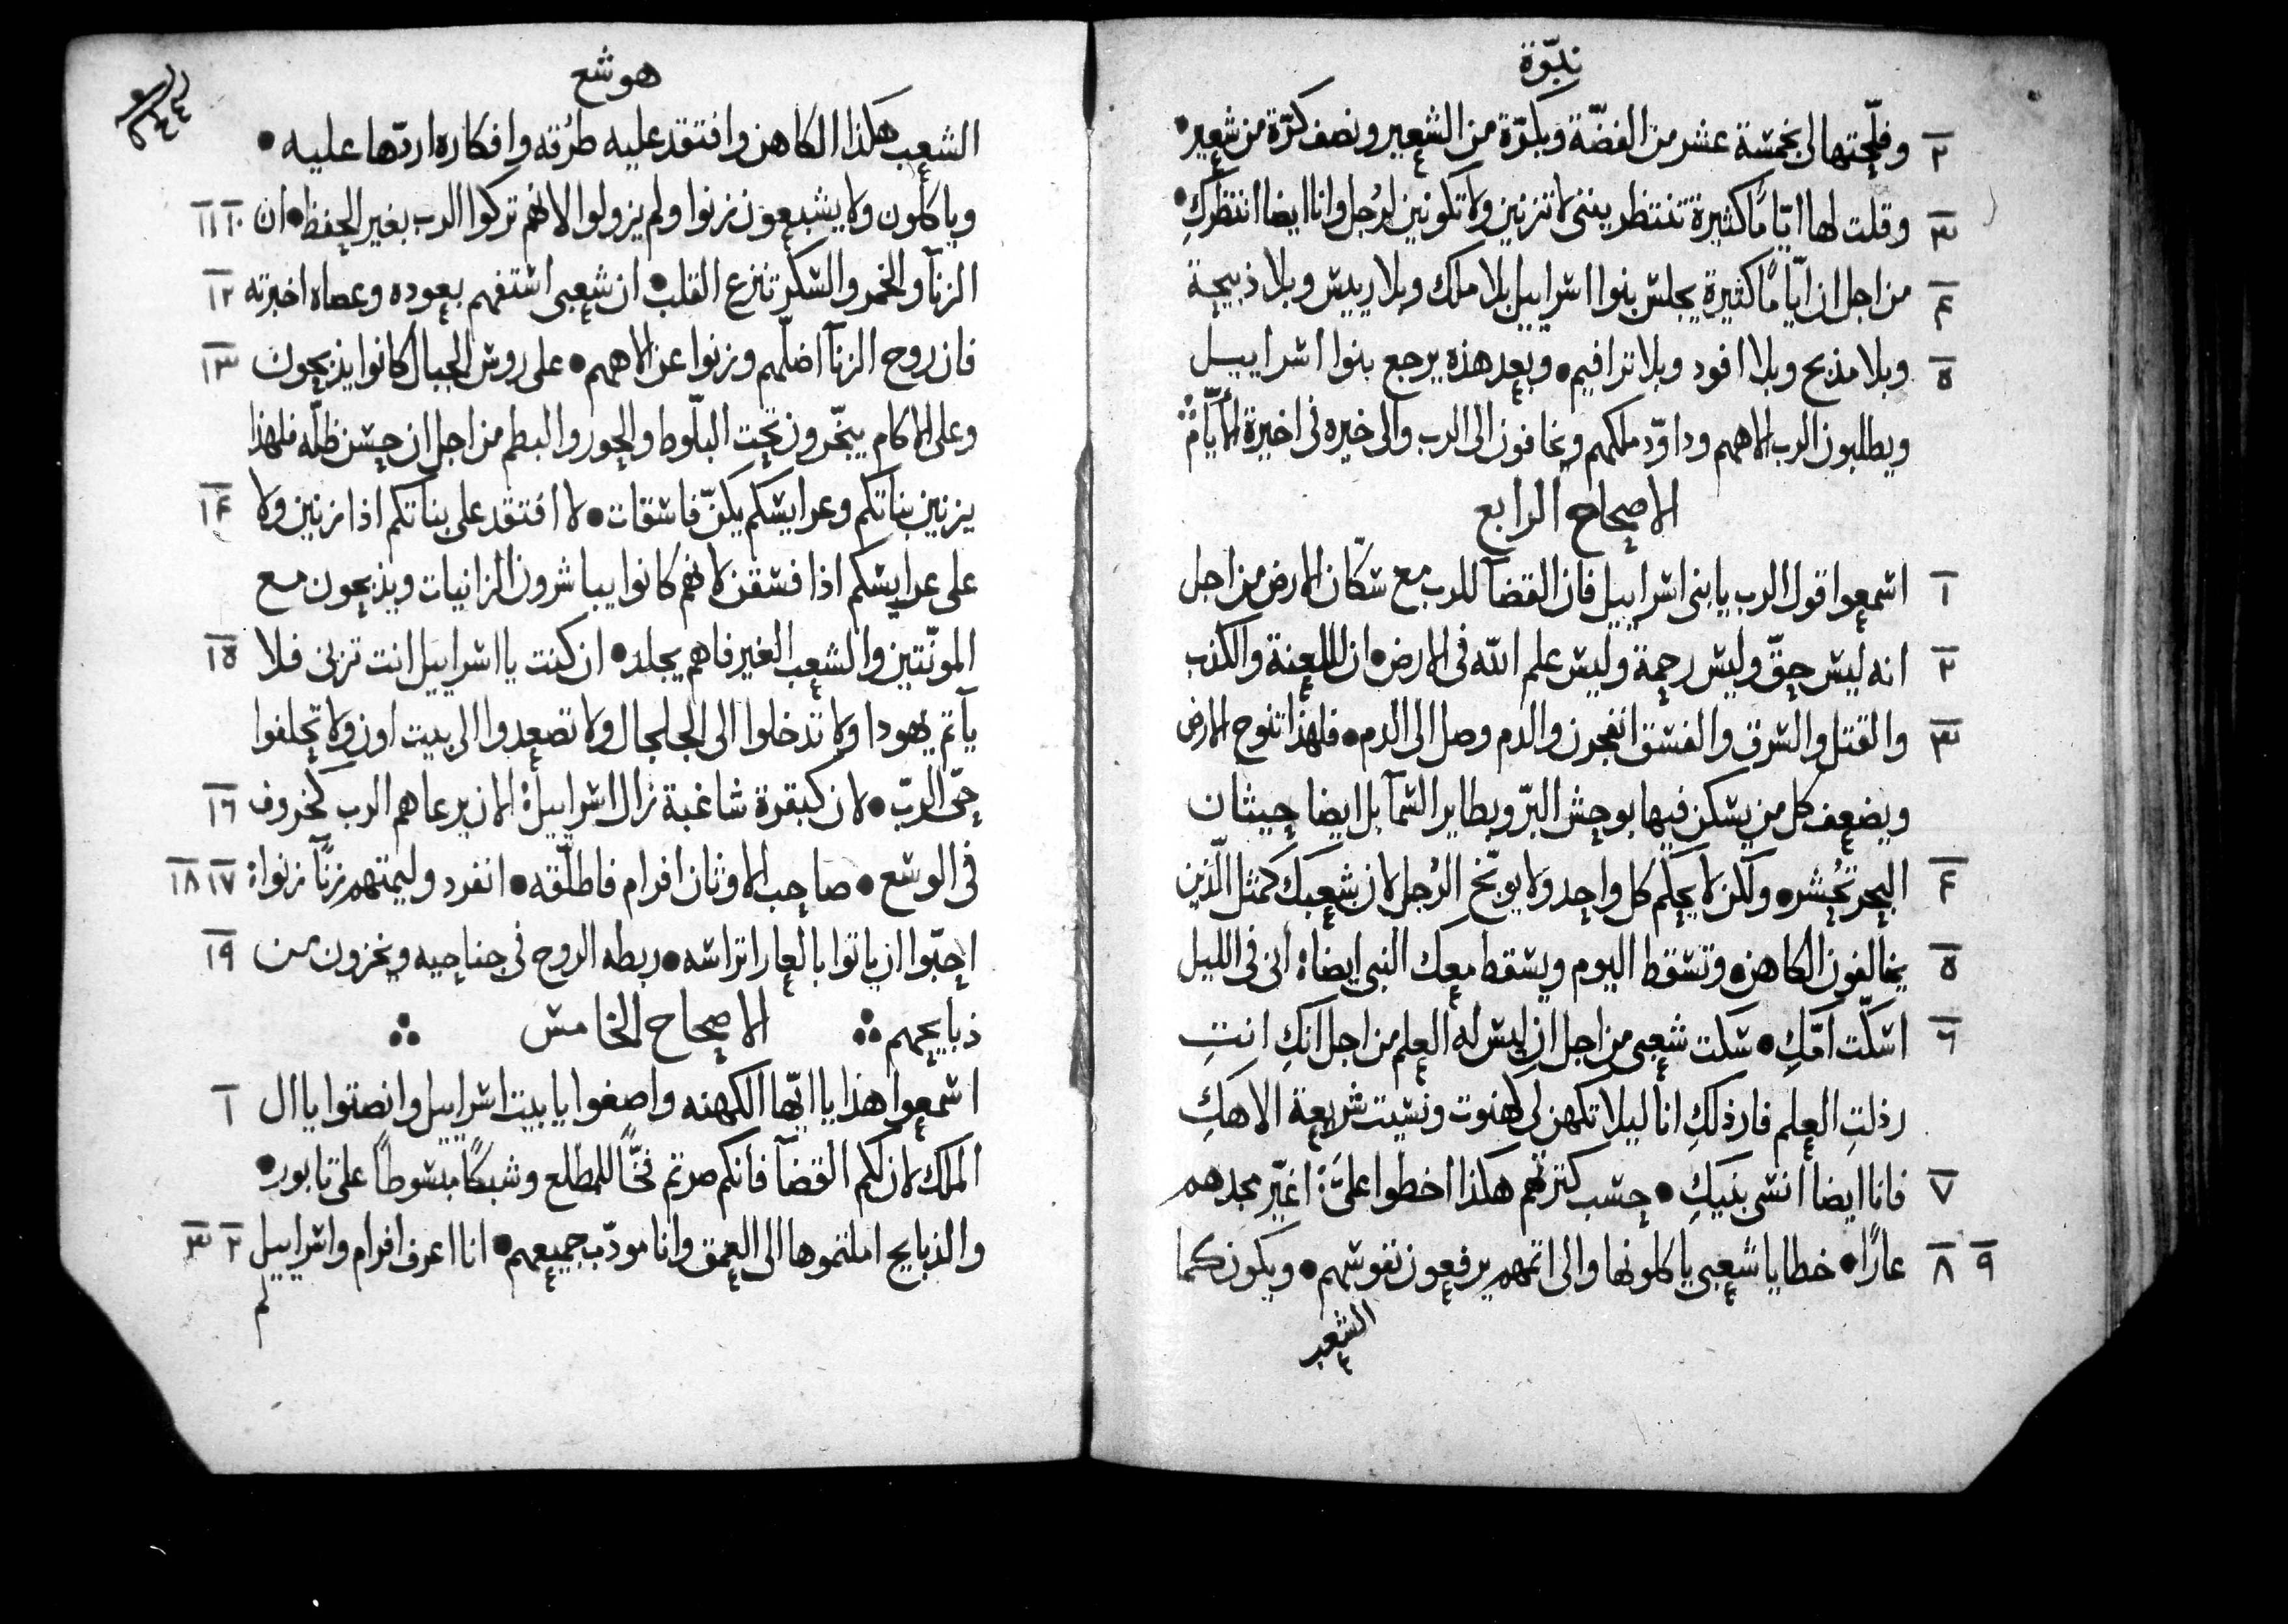 نبوّة
٢ وفلّحتها لي بخمسة عشر من الفضّة وبكرّة من الشعير ونصف كرّة من شعير •
٣ وقلت لها ايّامًا كثيرة تنتظريننى لا تزنين ولا تكونين لرجل وانا ايضا انتظركِ •
٤ من اجل ان ايّامًا كثيرة يجلس بنوا اسراييل بلا ملك وبلا رييس وبلا ذبيحة
٥ وبلا مذبح وبلا افود وبلا ترافيم • وبعد هذه يرجع بنوا اسراييل
ويطلبون الرب الاههم وداوّد ملكهم ويخافون الى الرب والى خيره فى اخيرة الأيّام ؞
الاصحاح الرابع
١ اسمعوا قول الرب يا بنى اسراييل فان القضآ للرب مع سكّان الارض من اجل
٢ انه ليس حقّ وليس رحمة وليس علم الله فى الارض • ان اللعنة والكذب
٣ والقتل والسرق والفسق انفجرن والدم وصل الى الدم • فلهذا تنوح الارض
ويضعف كل من يسكن فيها بوحش البرّ وبطاير السمآ بل ايضا حيتان
٤ البحر تحشر • ولكن لا يحكم كل واحد ولا يوبّخ الرجل لان شعبك كمثل الّذين
٥ يخالفون الكاهن • وتسقط اليوم ويسقط معك النبى ايضاه أنى فى الليل
٦ اسكّت امّكِ • سكت شعبى من اجل ان ليس له العلم من اجل انكِ انتِ
رذلتِ العلم فارذلكِ انا ليلا تكهن لى كهنوت ونسيت شريعة الاهكِ
٧ فانا ايضا انسى بنيكِ • حسب كثرتهم هكذا اخطوا علىَّ ؞ اغيّر مجدهم
٨ ٩ عارًا • خطايا شعبى ياكلونها والى اثمهم يرفعون نفوسهم • ويكون كما
الشعب
هوشع
الشعب هكذا الكاهن وافتقد عليه طرُقه وافكاره اردّها عليه •
وياكلون ولا يشبعون زنوا ولم يزولوا لانهم تركوا الرب بغير الحفظ • ان ١٠ ١١
الزنآ والخمر والسكر تنزع القلب • ان شعبى استفهم بعوده وعصاه اخبرته ١٢
فان روح الزنآ اضلّهم وزنوا عن الاههم • على روس الجبال كانوا يذبحون ١٣
وعلى الاكام يبخّرون تحت البلّوط والحور والبطم من اجل ان حسن ظلّه فلهذا
يزنين بناتكم وعرايسكم يكنّ فاسقات • لا افتقد على بناتكم اذا زنين ولا ١٤
على عرايسكم اذا فسقن لانهم كانوا يباشرون الزانيات ويذبحون مع
المونّتين والشعب الغير فاهم يجلد • ان كنت يا اسراييل انت تزنى فلا ١٥
يآثم يهودا ولا تدخلوا الى الجلجال ولا تصعدوا الى بيت اون ولا تحلفوا
حىّ الربّ • لان كبقرة شاغبة زال اسراييل ؞ الان يرعاهم الرب كخروف ١٦
فى الوسع • صاحب الاوثان افرام فاطلّقه • انفرد وليمتهم زنًآ زنوا ؞ ١٧ ١٨
احبّوا ان ياتوا بالعار اتراسه • ربطه الروح فى جناحيه ويخزون من ١٩
ذبايحهم ؞ الاصحاح الخامس ؞
اسمعوا هذا يا ايّها الكهنه واصغوا يا بيت اسراييل وانصتوا يا ال ١
الملك لان لكم القضآ فانكم صرتم فخًّا للمطلع وشبكًا مبسوطاً على تابور •
والذبايح املتموها الى العمق وانا مودّب جميعهم • انا اعرف افرام واسراييل ٢ ٣
لم